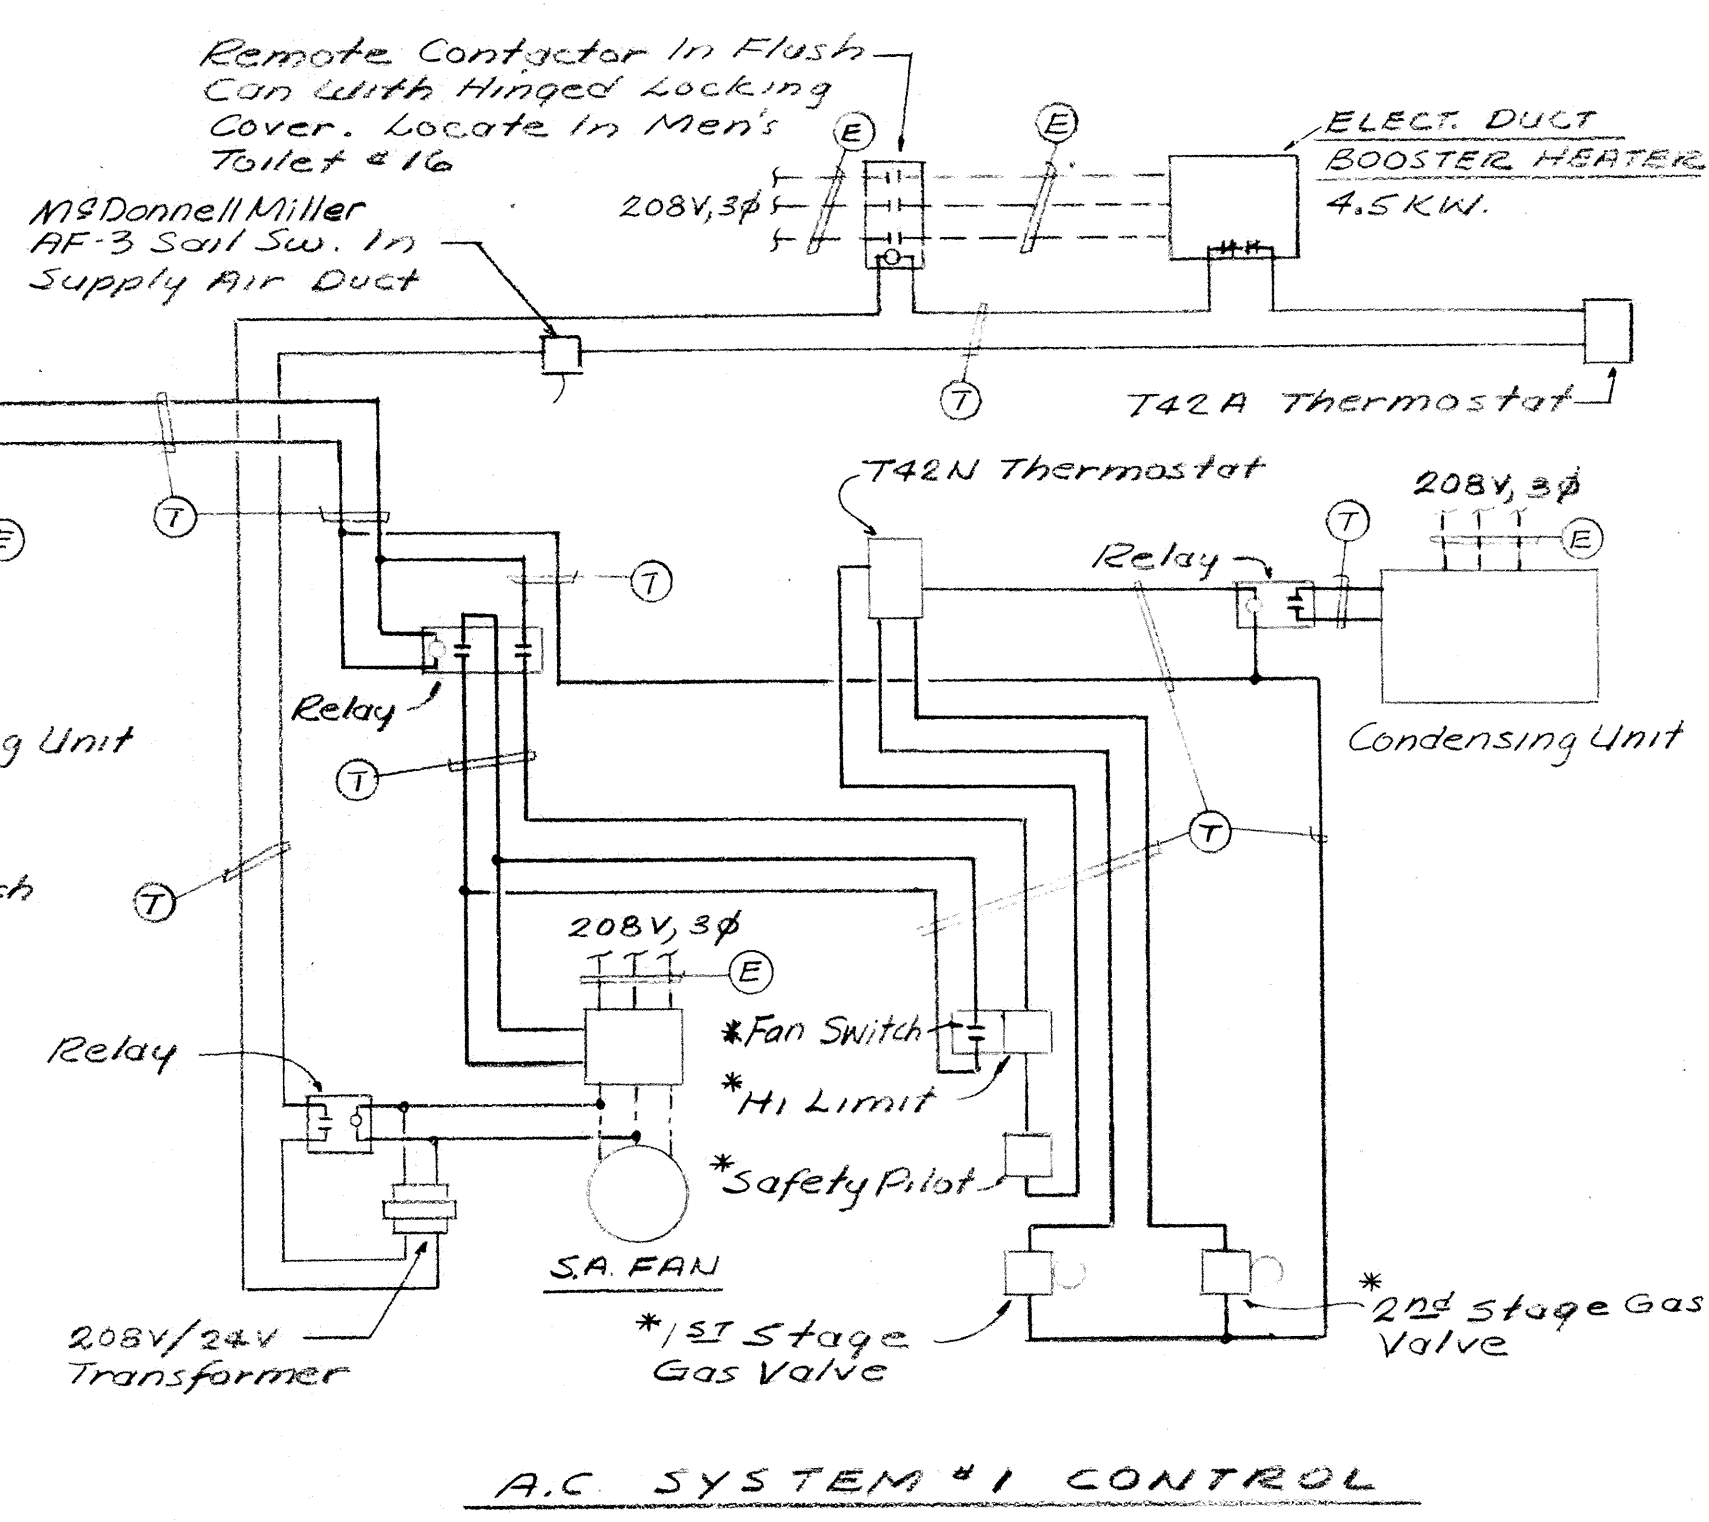 Remote Contactor In Flush
Can With Hinged Locking
Cover. Locate In Men's
Toilet #16
E
E
ELECT. DUCT
BOOSTER HEATER
4.5 KW.
208V, 3ø
McDonnell Miller
AF-3 Sail Sw. In
Supply Air Duct
T
T42A Thermostat
T42N Thermostat
208V, 3ø
T
E
T
E
Relay
T
Relay
g Unit
Condensing Unit
T
T
ch
T
208V, 3ø
E
*Fan Switch
Relay
*Hi Limit
*Safety Pilot
S.A. FAN
*1ST Stage
Gas Valve
*2nd Stage Gas
Valve
208V/24V
Transformer
A.C SYSTEM #1 CONTROL